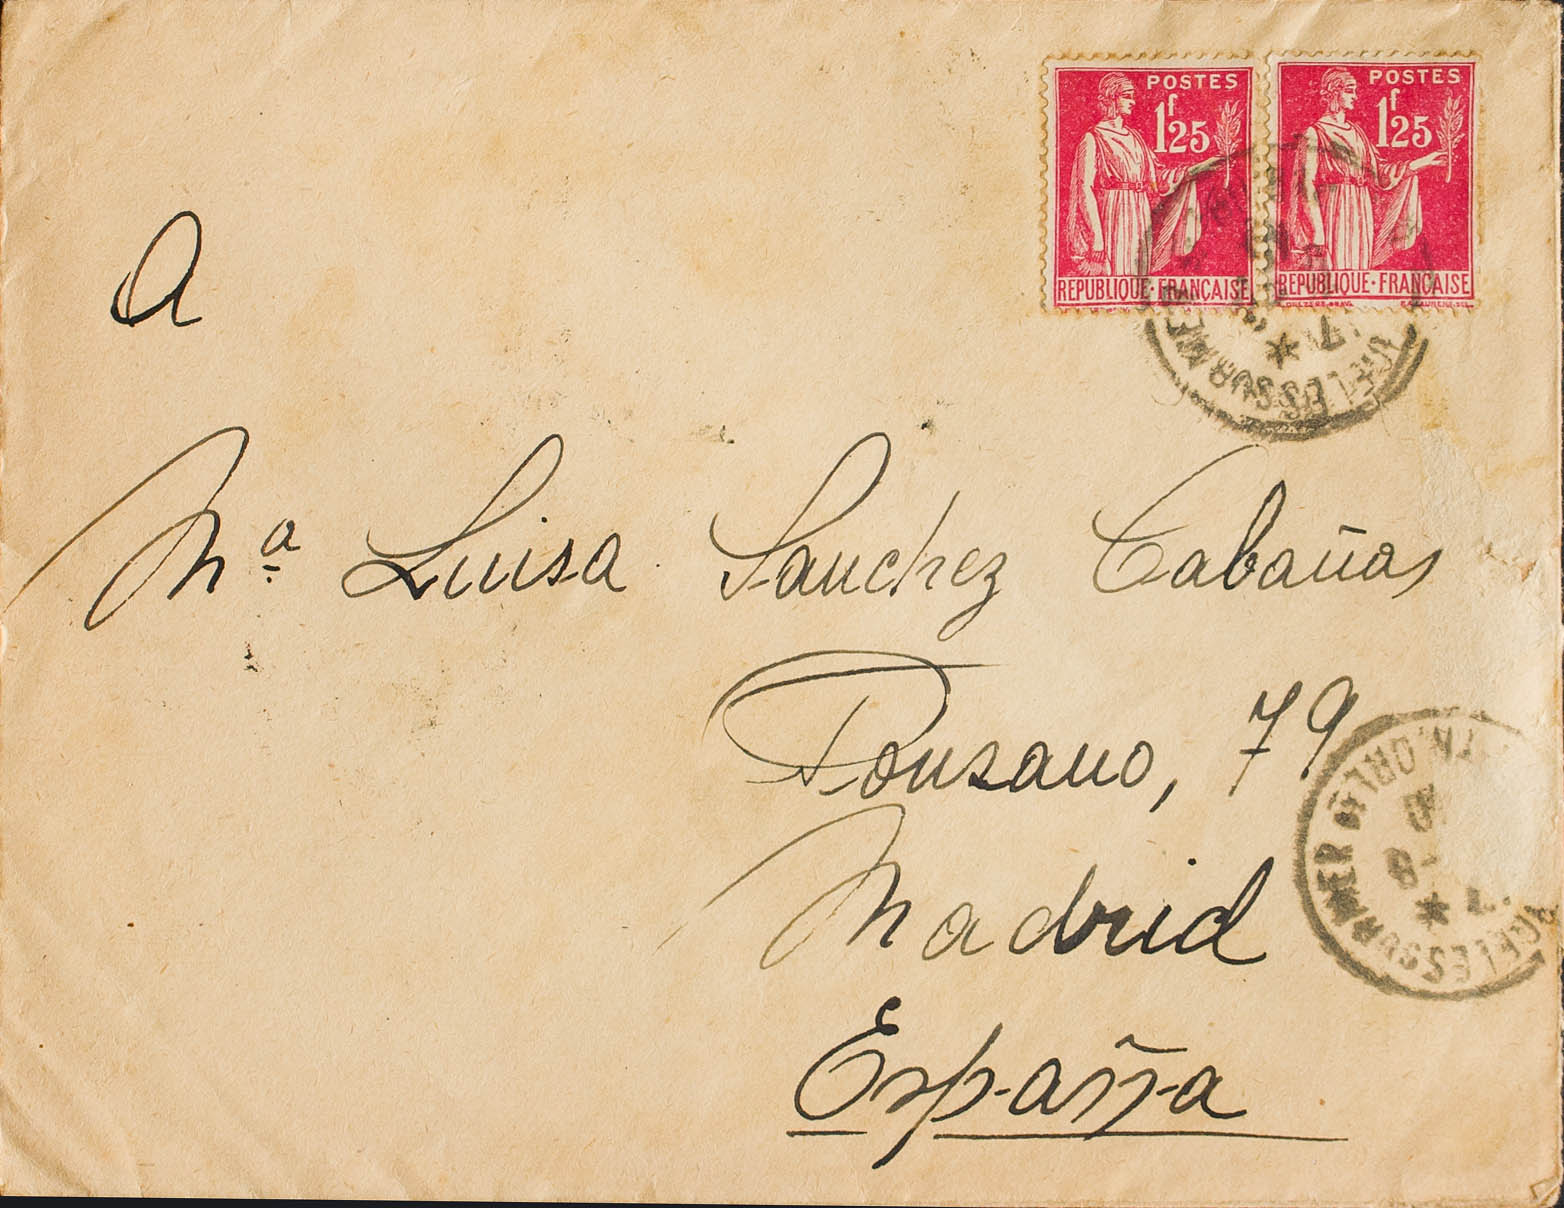 POSTES
1f25
REPUBLIQUE·FRANÇAISE
POSTES
1f25
REPUBLIQUE·FRANÇAISE
A
Mª Luisa Sanchez Cabañas
Ponzano, 79
Madrid
España
SUR MER
SUR MER